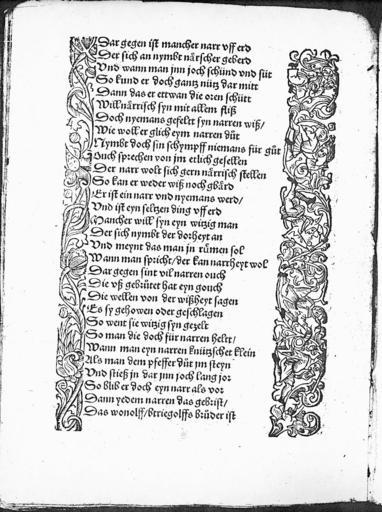 Dar gegen ist mancher narr vff erd
Der sich an nymbt närscher geberd
Vnd wann man jnn joch schünd vnd süt
So kund er doch gantz nütz dar mitt
Dann das er ettwan die oren schütt
Will närrisch syn mit allem fliß
Doch nyemans gefelt syn narren wiß/
Wie woll er glich eym narren düt
Nymbt doch sin schympff niemans für güt
Ouch sprechen von jm etlich gesellen
Der narr wolt sich gern närrisch stellen
So kan er weder wiß noch gbärd
Er ist ein narr vnd nyemans werd/
Vnd ist eyn seltzen ding vff erd
Mancher will syn eyn witzig man
Der sich nymbt der dorheyt an
Vnd meynt das man jn rümen sol
Wann man spricht/ der kan narrheyt wol
Dar gegen sint vil narren ouch
Die vß gebrütet hat eyn gouch
Die wellen von der wißheyt sagen
Es sy gehowen oder geschlagen
So went sie witzig syn gezelt
So man die doch für narren helt/
Wann man eyn narren knützschet klein
Als man dem pfeffer düt jm steyn
Vnd stieß jn dar jnn joch lang jor
So blib er doch eyn narr als vor
Dann yedem narren das gebrist/
Das wonolff/ btriegolffs brüder ist